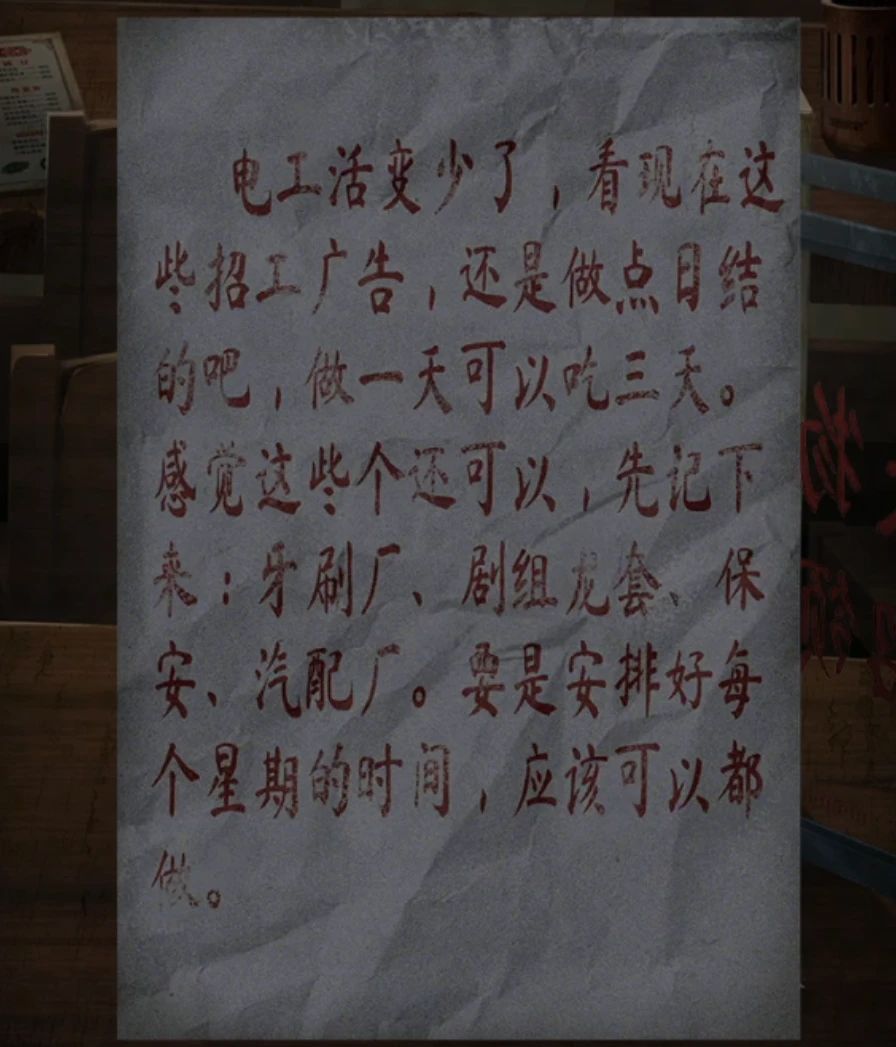 电工活变少了，看现在这
些招工广告，还是做点日结
的吧，做一天可以吃三天。
感觉这些个还可以，先记下
来：牙刷厂、剧组龙套、保
安、汽配厂。要是安排好每
个星期的时间，应该可以都
做。